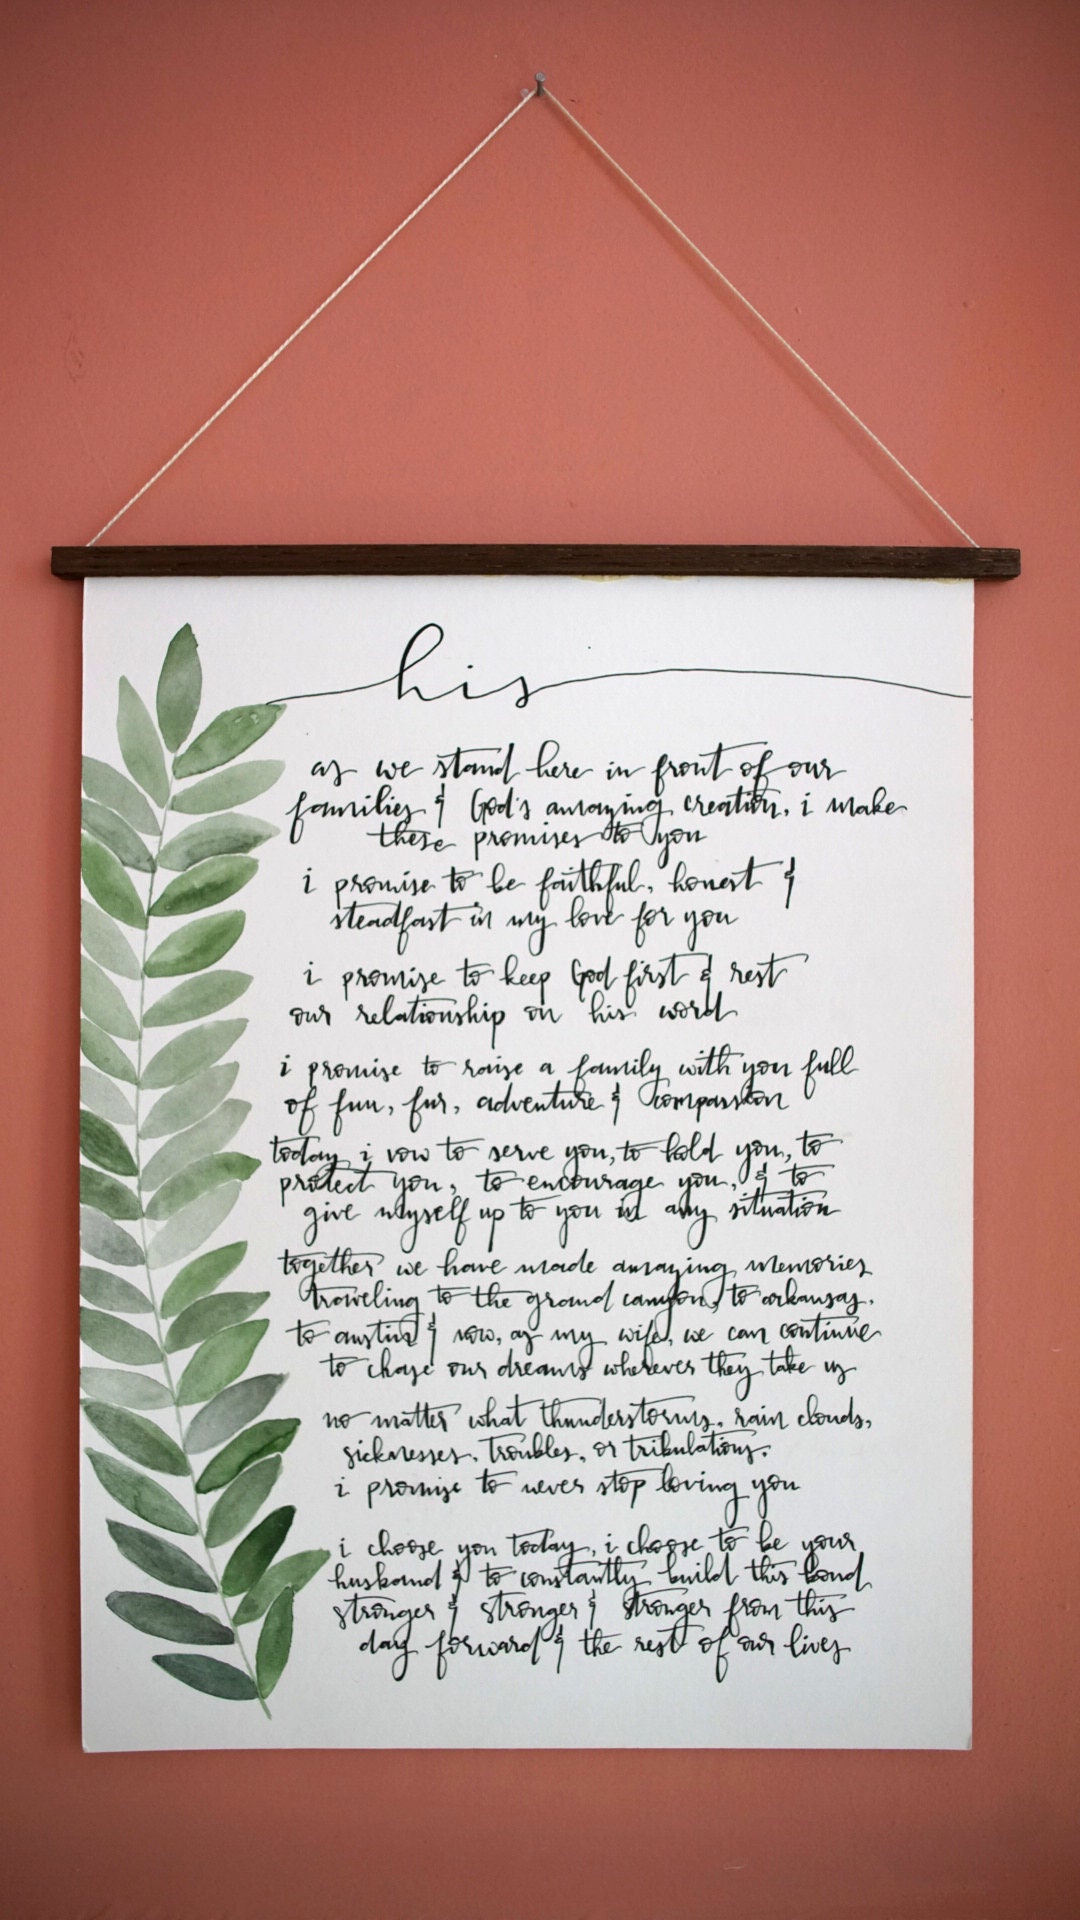 his
as we stand here in front of our
families & God's amazing creation, i make
these promises to you
i promise to be faithful, honest &
steadfast in my love for you
i promise to keep God first & rest
our relationship on his word
i promise to raise a family with you full
of fun, fur, adventure & compassion
today i vow to serve you, to hold you, to
protect you, to encourage you, & to
give myself up to you in any situation
together we have made amazing memories
traveling to the grand canyon, to arkansas,
to austin & now, as my wife, we can continue
to chase our dreams wherever they take us
no matter what thunderstorms, rain clouds,
sicknesses, troubles, or tribulations,
i promise to never stop loving you
i choose you today, i choose to be your
husband & to constantly build this bond
stronger & stronger & stronger from this
day forward & the rest of our lives